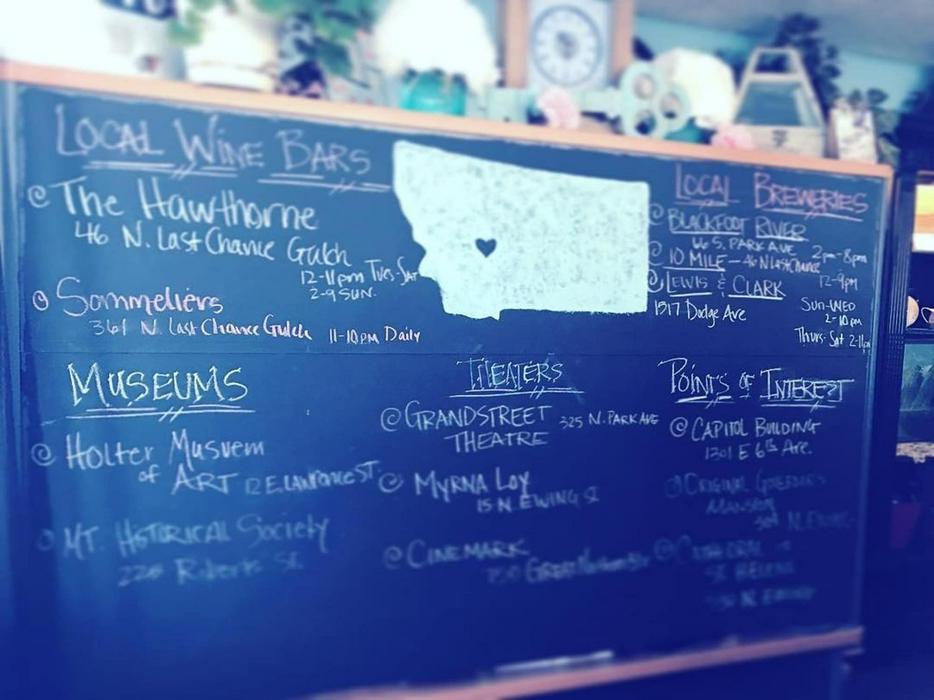 LOCAL WINE BARS
@ The Hawthorne
46 N. Last Chance Gulch
12-11pm Tues-Sat
2-9 SUN.
@ Sommeliers
361 N. Last Chance Gulch 11-10PM Daily
LOCAL BREWERIES
@ BLACKFOOT RIVER
66 S. PARK AVE 2pm-8pm
@ 10 MILE - 46 N Last Chance
12-9pm
@ LEWIS & CLARK
1517 Dodge Ave
Sun-WED
2-10pm
Thurs-Sat 2-11pm
MUSEUMS
@ Holter Museum
of ART 12 E. Lawrence ST.
@ MT. HISTORICAL Society
Roberts St.
THEATERS
@ GRANDSTREET 325 N. PARK AVE
THEATRE
@ MYRNA LOY
15 N. EWING St
@ CINEMARK
750 Great Northern Blvd
POINTS OF INTEREST
@ CAPITOL BUILDING
1301 E 6th Ave.
@ ORIGINAL GOVERNOR'S
MANSION
304 N. EWING
@ CATHEDRAL of
ST. HELENA
530 N. EWING